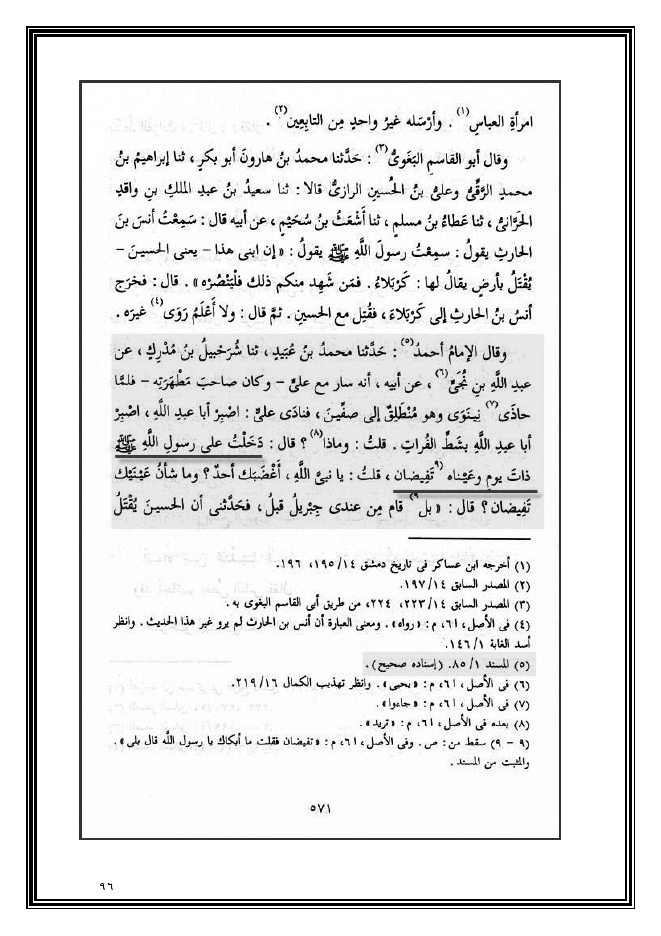 امرأةِ العباسِ(١) . وأرْسَله غيرُ واحدٍ مِن التابِعِين(٢) .
وقال أبو القاسمِ البَغَوىُّ(٣) : حَدَّثنا محمدُ بنُ هارونَ أبو بكرٍ ، ثنا إبراهيمُ بنُ
محمدٍ الرَّقِّىُّ وعلىُّ بنُ الحُسينِ الرازىُّ قالا : ثنا سعيدُ بنُ عبدِ الملكِ بنِ واقدٍ
الحَرَّانىُّ ، ثنا عَطاءُ بنُ مسلمٍ ، ثنا أشْعَثُ بنُ سُحَيْمٍ ، عن أبيه قال : سَمِعْتُ أنسَ بنَ
الحارثِ يقولُ : سمِعْتُ رسولَ اللَّهِ ﷺ يقولُ : « إن ابنى هذا – يعنى الحسينَ –
يُقْتَلُ بأرضٍ يقالُ لها : كَرْبَلاءُ . فمَن شَهِد منكم ذلك فلْيَنْصُرْه » . قال : فخرَج
أنسُ بنُ الحارثِ إلى كَرْبَلاءَ ، فقُتِل مع الحسينِ . ثمَّ قال : ولا أَعْلَمُ رَوَى(٤) غيرَه .
وقال الإمامُ أحمدُ(٥) : حَدَّثنا محمدُ بنُ عُبَيدٍ ، ثنا شُرَحْبيلُ بنُ مُدْرِكٍ ، عن
عبدِ اللَّهِ بنِ نُجَىٍّ(٦) ، عن أبيه ، أنه سار مع علىٍّ – وكان صاحبَ مَطْهَرَتِه – فلمَّا
حاذَى(٧) نِينَوَى وهو مُنْطَلِقٌ إلى صفِّينَ ، فنادَى علىٌّ : اصْبِرْ أبا عبدِ اللَّهِ ، اصْبِرْ
أبا عبدِ اللَّهِ بشَطِّ الفُراتِ . قلتُ : وماذا(٨) ؟ قال : دَخَلْتُ على رسولِ اللَّهِ ﷺ
ذاتَ يومٍ وعَيْناه (٩تَفِيضان ، قلتُ : يا نبىَّ اللَّهِ ، أَغْضَبَك أحدٌ ؟ وما شأنُ عَيْنَيْك
تَفِيضان ؟ قال : « بل٩) قام مِن عندى جِبْريلُ قبلُ ، فحَدَّثنى أن الحسينَ يُقْتَلُ
(١) أخرجه ابن عساكر فى تاريخ دمشق ١٤/ ١٩٥، ١٩٦.
(٢) المصدر السابق ١٤/ ١٩٧.
(٣) المصدر السابق ١٤/ ٢٢٣، ٢٢٤، من طريق أبى القاسم البغوى به .
(٤) فى الأصل، ٦١، م : « رواه » . ومعنى العبارة أن أنس بن الحارث لم يرو غير هذا الحديث . وانظر
أسد الغابة ١/ ١٤٦.
(٥) المسند ١/ ٨٥. (إسناده صحيح) .
(٦) فى الأصل، ٦١، م : « يحيى » . وانظر تهذيب الكمال ١٦/ ٢١٩.
(٧) فى الأصل، ٦١، م : « جاءوا » .
(٨) بعده فى الأصل، ٦١، م : « تريد » .
(٩ - ٩) سقط من : ص . وفى الأصل، ٦١، م : « تفيضان فقلت ما أبكاك يا رسول اللَّه قال بلى » .
والمثبت من المسند .
٥٧١
٩٦